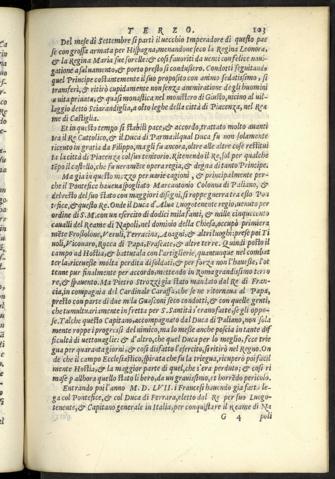 TERZO. 103
Del mese di Settembre si partì il vecchio Imperadore di questo pae
se con grossa armata per Hispagna, menandone seco la Regina Leonora,
& la Regina Maria sue sorelle: & così fauoriti da uenti con felice naui-
gatione a saluamento, & porto presto si condussero. Condotti seguitando
quel Principe costantemente il suo proposito con animo sodatissimo, si
transferì, & ritirò cupidamente non senza ammiratione degli huomini
a uita priuata, & quasi monastica nel munistero di Giusto, uicino al uil-
laggio detto Sciarandiglia, a otto leghe della città di Piacenza, nel Rea
me di Castiglia.
Et in questo tempo si stabilì pace, & accordo, trattato molto auanti
tra il Re Cattolico, & il Duca di Parma: il qual Duca fu non solamente
riceuuto in gratia da Filippo, ma gli fu ancora, oltre alle altre cose restitui
ta la città di Piacenza col suo territorio, ritenendo il Re, sol per qualche
tẽpo il castello, che fu ueramẽte opera regia, & degna di tanto Principe.
Ma già in questo mezzo per uarie cagioni, & principalmente per-
che il Pontefice haueua spogliato Marcantonio Colonna di Paliano, &
del resto del suo stato con maggiori disegni, si roppe guerra tra esso Pon
tefice, & questo Re. Onde il Duca d'Alua luogotenente regio, uenuto per
ordine di S.M. con un esercito di dodici mila fanti, & mille cinquecento
caualli del Reame di Napoli, nel dominio della Chiesa, occupò primiera
mẽte Frosolone, Veruli, Terracina, Anagni, & altri luoghi: prese poi Ti
uoli, Vicouaro, Rocca di Papa, Frascate, & altre terre. Quindi posto il
campo ad Hostia, & battutala con l'artiglierie, quantunque nel combat
terla riceuesse molta perdita di soldati, & per forza non l'hauesse, l'ot
tenne pur finalmente per accordo, mettendo in Roma grandissimo terro
re, & spauento. Ma Pietro Strozzi già stato mandato dal Re di Fran-
cia, in compagnia del Cardinale Caraffa, che se ne ritornaua al Papa,
presto con parte di due mila Guasconi seco condotti, & con quelle genti,
che tumultuariamente in fretta per S. Santità s'eran fatte, se gli oppo-
se. Talche questo Capitano, accompagnato dal Duca di Paliano, non sola
mente roppe i progressi del nimico, ma lo messe anche poscia in tante dif
ficultà di uettouaglie: & d'altro, che quel Duca per lo meglio, fece trie
gua per quaranta giorni, & così disfatto l'esercito, si ritirò nel Regno. On
de che il campo Ecclesiastico, spirata che fu la triegua, ricuperò poi facil
mente Hostia, & la maggior parte di quel, che s'era perduto; & così ri
mase p allhora quello stato libero, da un grauissimo, et horrẽdo pericolo.
Entrando poi l'anno M. D. LVII. i Francesi hauendo già fatta le-
ga col Pontefice, & col Duca di Ferrara, eletto dal Re per suo Luogo-
tenente, & Capitano generale in Italia, per conquistare il Reame di Na
G 4 poli